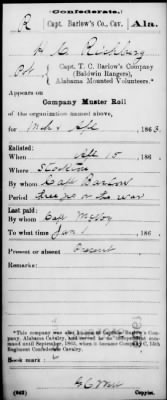 (Confederate.)
R Capt. Barlow's Co., Cav. Ala.
H C Richburg
Pvt, Capt. T. C. Barlow's Company
(Baldwin Rangers),
Alabama Mounted Volunteers.*
Appears on
Company Muster Roll
of the organization named above,
for Mch & Apl, 1863.
Enlisted:
When 15, 186
Where Stockton
By whom Capt Barlow
Period three yrs or the war
Last paid:
By whom Capt McVoy
To what time Jan 1, 186
Present or absent Present
Remarks:
*This company was also known as Captain Barlow's Company, Alabama Cavalry, and served as an independent company until September, 1863, when it became Company C, 15th Regiment Confederate Cavalry.
Book mark:
(642) Copyist.